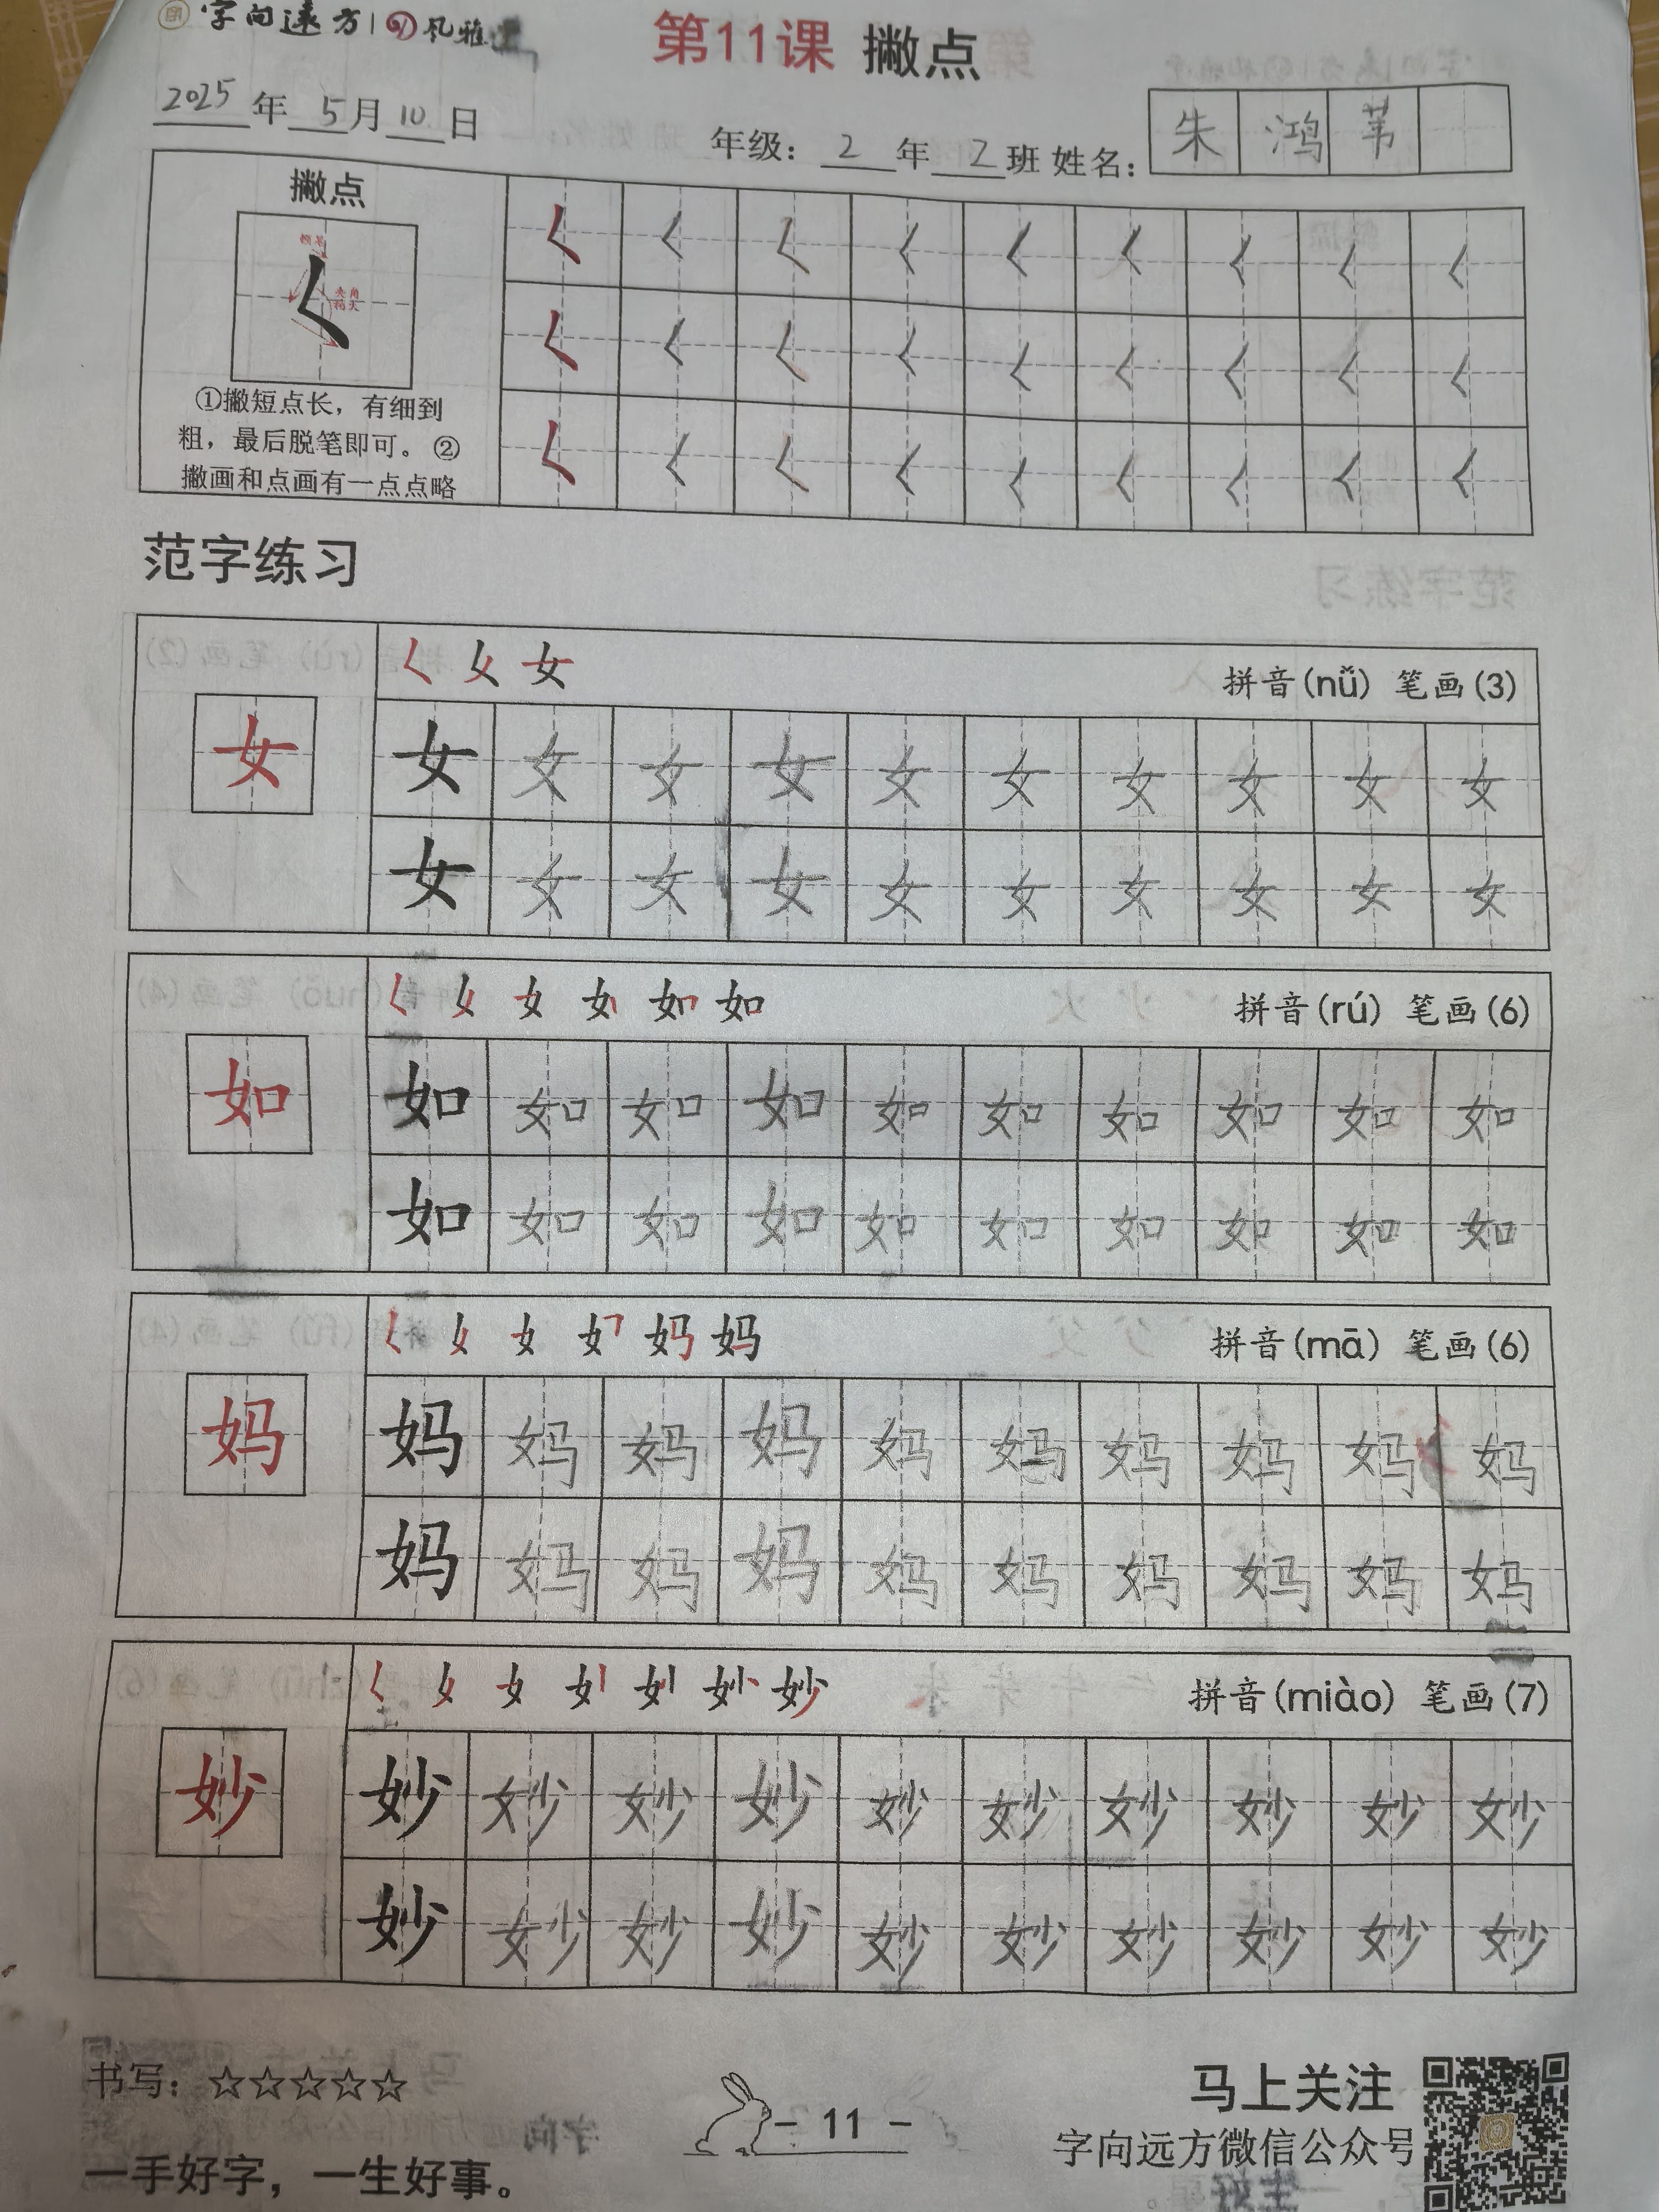 字向远方 | 风雅
第11课 撇点
2025年5月10日
年级：2年2班 姓名：朱鸿苇
撇点
①撇短点长，有细到
粗，最后脱笔即可。②
撇画和点画有一点点略
范字练习
拼音(nǚ) 笔画(3)
女 女 女 女 女 女 女 女 女 女 女
女 女 女 女 女 女 女 女 女 女
拼音(rú) 笔画(6)
如 如 如 如 如 如 如 如 如 如 如
如 如 如 如 如 如 如 如 如 如
拼音(mā) 笔画(6)
妈 妈 妈 妈 妈 妈 妈 妈 妈 妈 妈
妈 妈 妈 妈 妈 妈 妈 妈 妈 妈
拼音(miào) 笔画(7)
妙 妙 妙 妙 妙 妙 妙 妙 妙 妙 妙
妙 妙 妙 妙 妙 妙 妙 妙 妙 妙
书写：☆☆☆☆☆
一手好字，一生好事。
- 11 -
马上关注
字向远方微信公众号